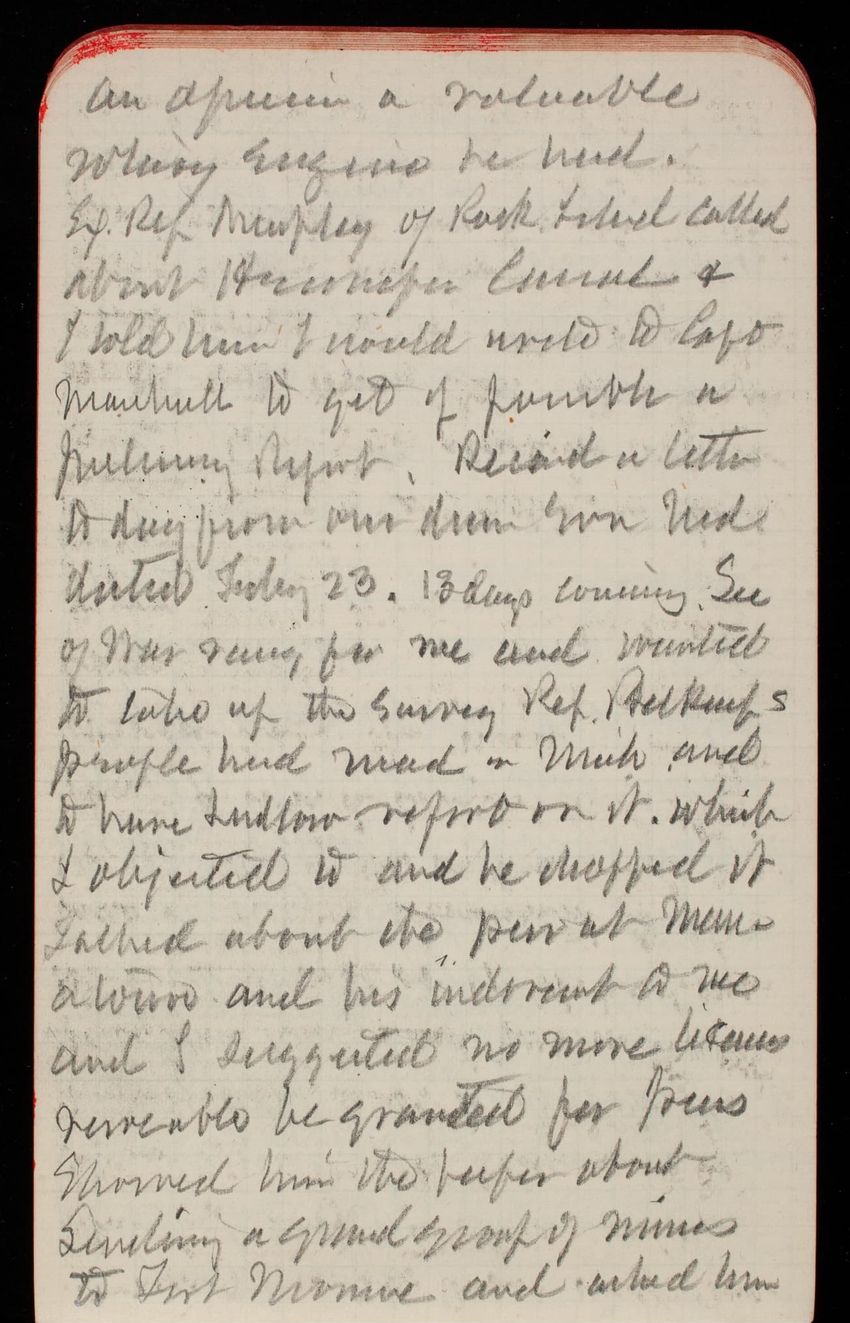 an opinion a valuable
rotary Engine he had.
Ex. Rep Murphy of Rock Island called
about Hennepin Canal &
I told him I would write to Capt
Marshall to get if possible a
Preliminary Report. Received a letter
to day from our dear Son Ned
dated Feby 23. 13 days coming. Sec
of War rang for me and wanted
to take up the Survey Rep. Belknaps
people had mad in Mich and
to have Ludlow report on it. which
I objected to and he dropped it
Talked about the pier at Man-
atowoc and his indorsemt to me
and I suggested no more licenses
revocable be granted for Piers
Showed him the paper about
Sending a grand group of mines
to Fort Monroe and asked him